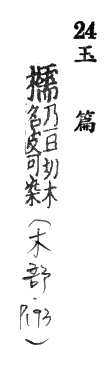 24 玉篇
檽 乃豆切木
名皮可染
(木部·P193)